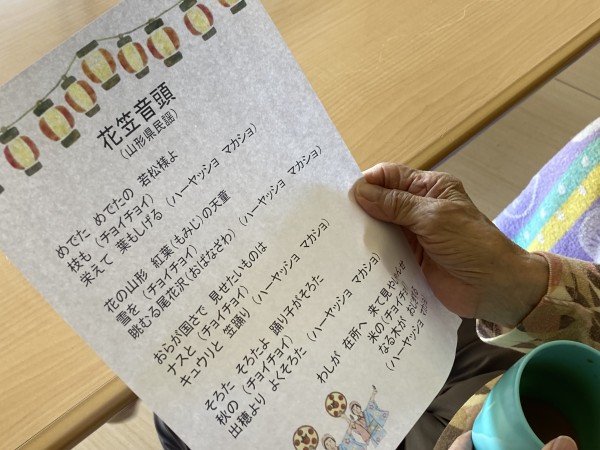 花笠音頭
(山形県民謡)
めでた めでたの 若松様よ
枝も (チョイチョイ)
栄えて 葉もしげる (ハーヤッショ マカショ)
花の山形 紅葉(もみじ)の天童
雪を (チョイチョイ)
眺むる尾花沢(おばなざわ) (ハーヤッショ マカショ)
おらが国さで 見せたいものは
ナスと (チョイチョイ)
キュウリと 笠踊り (ハーヤッショ マカショ)
そろた そろたよ 踊り子がそろた
秋の (チョイチョイ)
出穂より よくそろた (ハーヤッショ マカショ)
わしが 在所へ 来て見やしゃんせ
米の (チョイチョイ)
なる木が おじぎする
(ハーヤッショ マカショ)